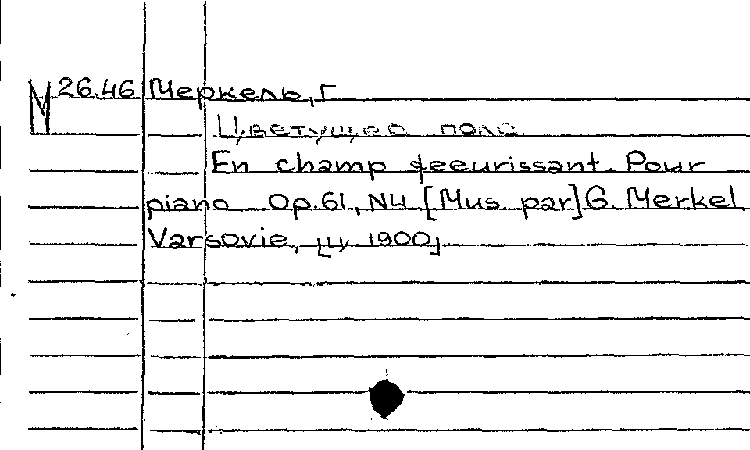 М 26.46 Меркель, Г
Цветущее поле
En champ feeurissant. Pour
piano Op.61, N4 [Mus par] G. Merkel
Varsovie, [ц 1900]